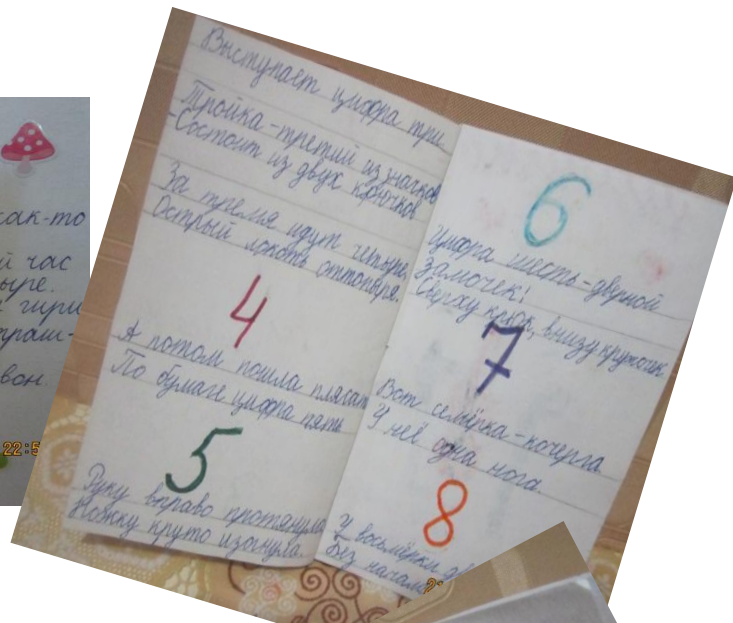 как-то
й час
ыре.
гири
траш-
вон.
22:5
Выступает цифра три
Тройка-третий из значков
-Состоит из двух крючков.
За тремя идут четыре,
Острый локоть оттопыря.
4
А потом пошла плясать
По бумаге цифра пять
5
Руку вправо протянула
Ножку круто изогнула.
6
Цифра шесть-дверной
Замочек!
Сверху крюк, внизу кружочек.
7
Вот семёрка-кочерга
У неё одна нога.
8
У восьмёрки дв
Без начала